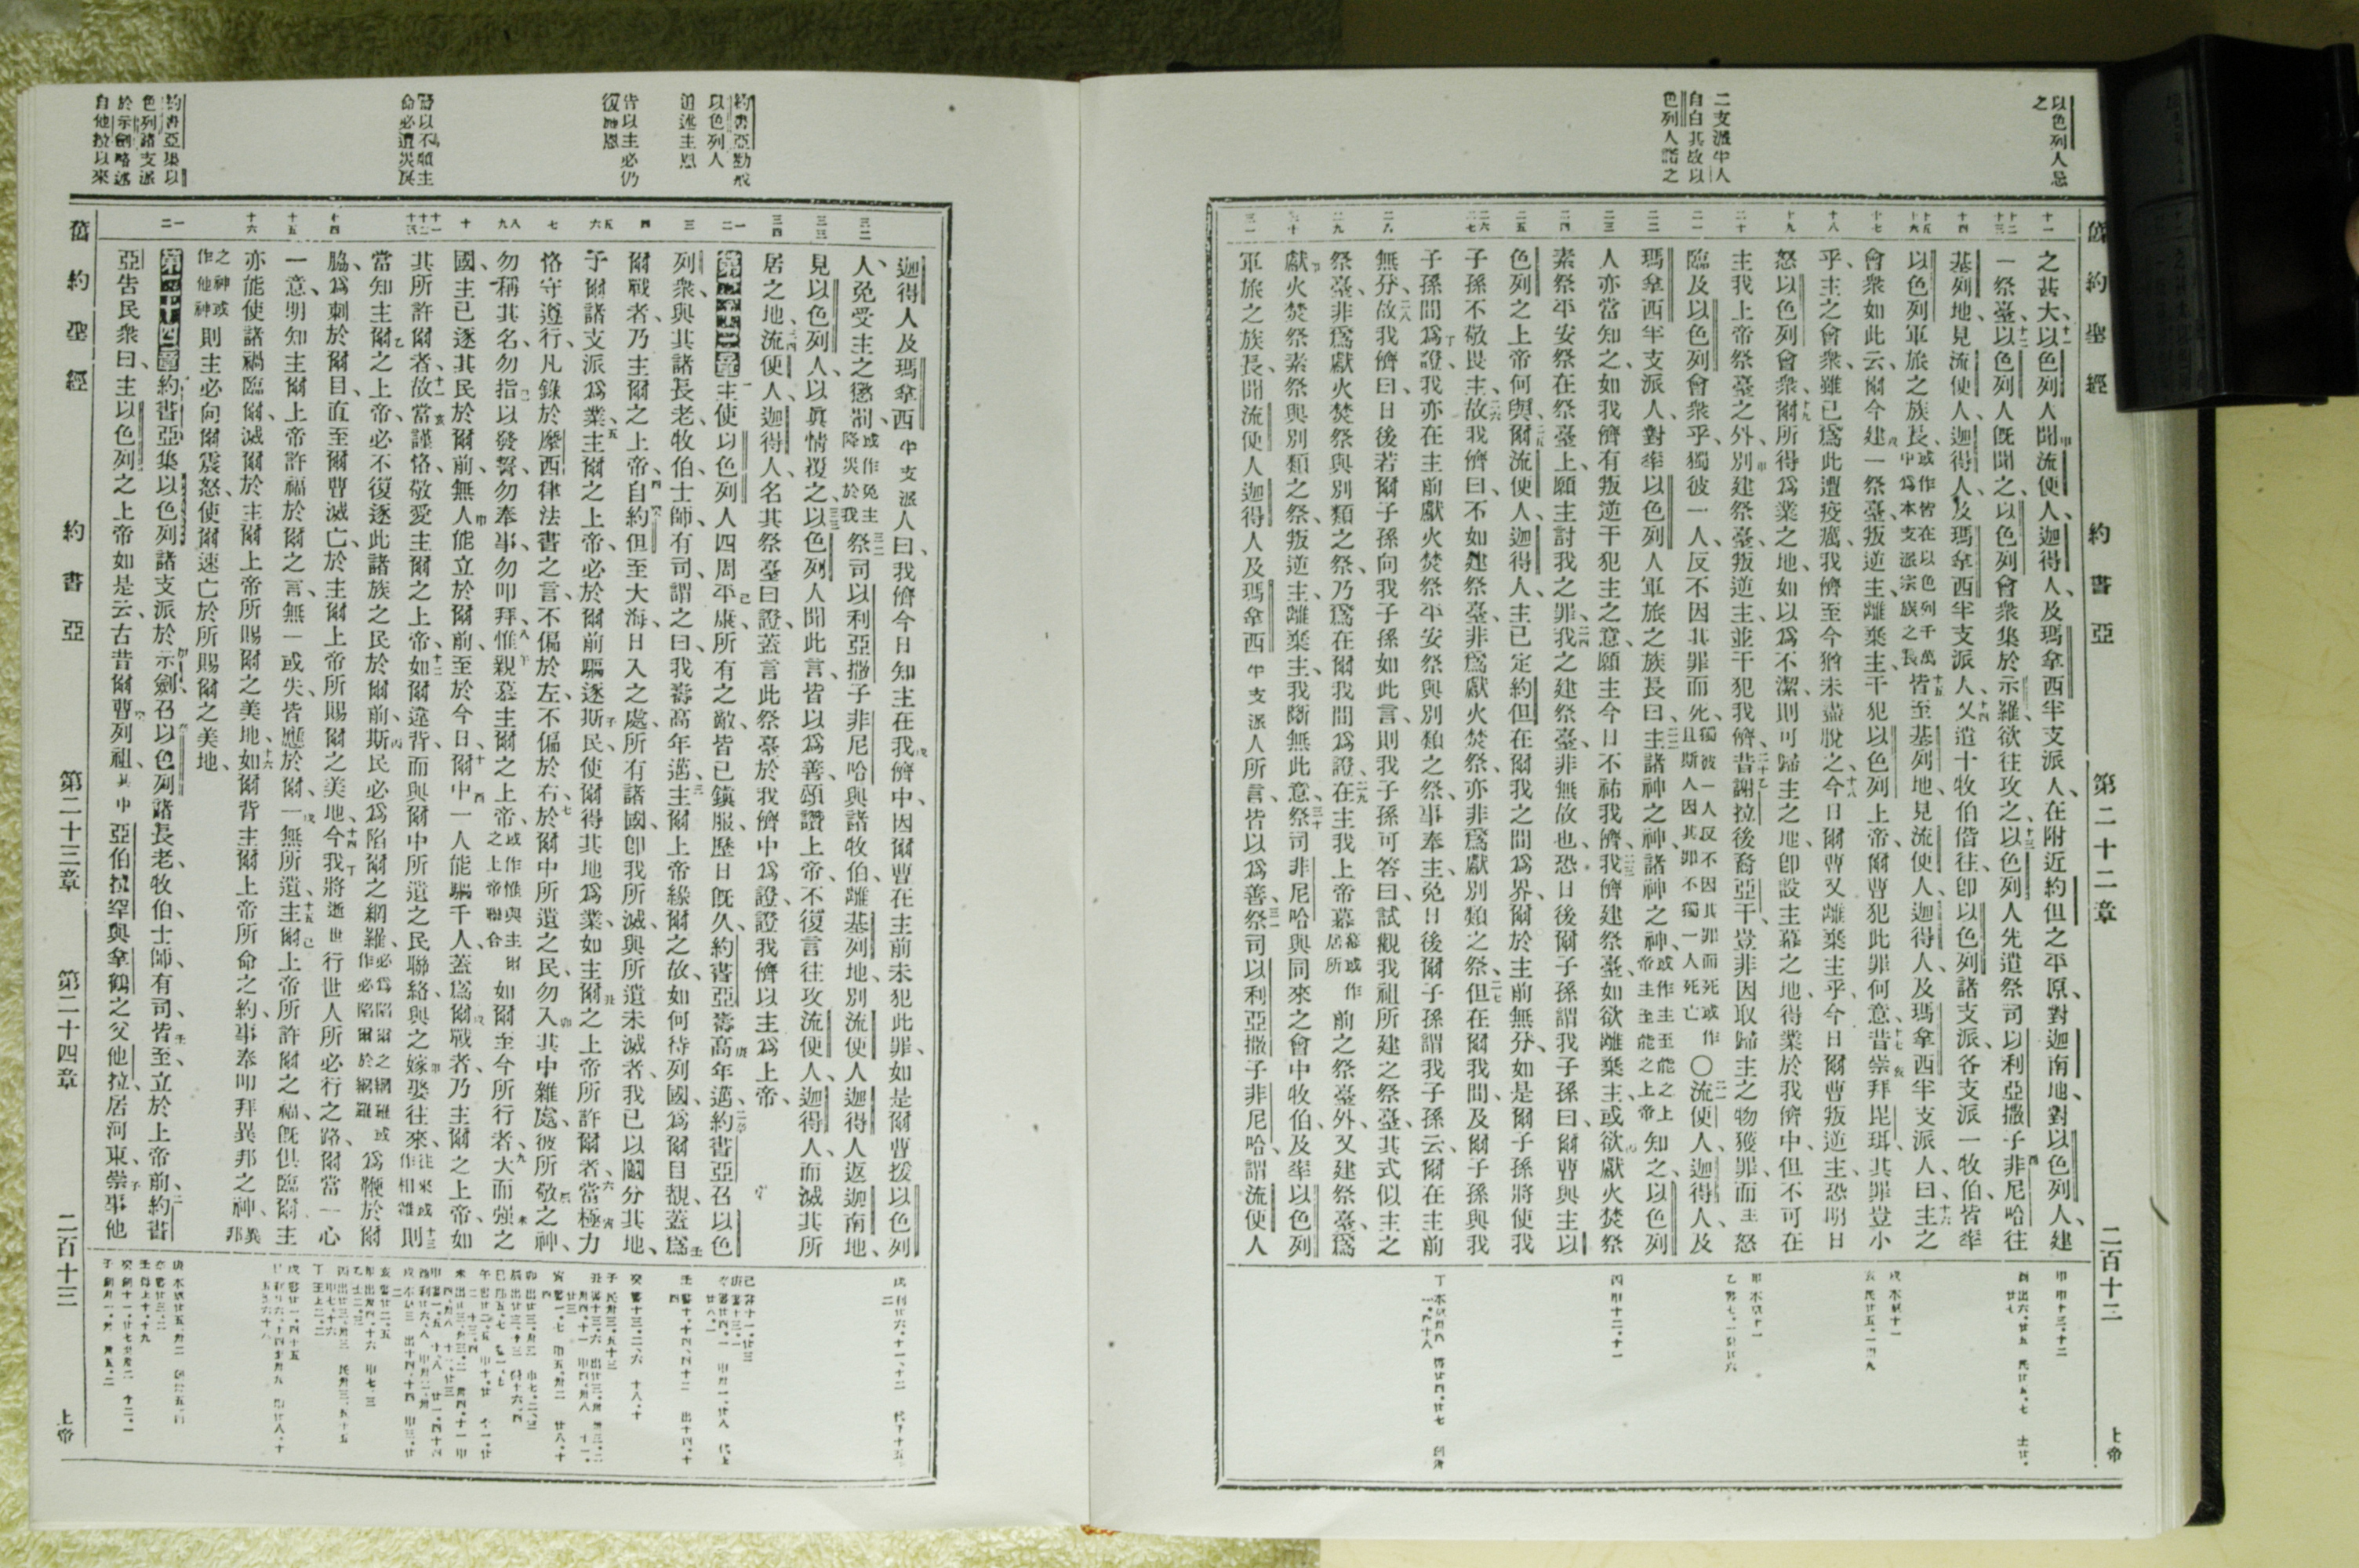 以色列人忌
之
二支派半人
自白其故以
色列人諾之
舊約聖經 約書亞 第二十二章 二百十二 上帝
之甚大、以色列人聞流便人、迦得人、及瑪拿西半支派人、在附近約但之平原、對迦南地、對以色列人、建
一祭臺、以色列人旣聞之、以色列會衆集於示羅、欲往攻之、以色列人先遣祭司以利亞撒子非尼哈往
基列地、見流便人、迦得人、及瑪拿西半支派人、又遣十牧伯偕往、卽以色列諸支派、各支派一牧伯、皆率
以色列軍旅之族長、或作皆在以色列千萬中爲本支派宗族之長皆至基列地、見流便人、迦得人、及瑪拿西半支派人、曰、主之
會衆如此云、爾今建一祭臺、叛逆主、離棄主、干犯以色列上帝、爾曹犯此罪何意、昔崇拜毘珥、其罪豈小
乎、主之會衆、雖已爲此遭疫癘、我儕至今猶未盡脫之、今日爾曹又離棄主乎、今日爾曹叛逆主、恐明日
怒以色列會衆、爾所得爲業之地、如以爲不潔、則可歸主之地、卽設主幕之地、得業於我儕中、但不可在
主我上帝祭臺之外、別建祭臺、叛逆主、並干犯我儕、昔謝拉後裔亞干、豈非因取歸主之物獲罪、而主怒
臨及以色列會衆乎、獨彼一人、反不因其罪而死、獨彼一人反不因其罪而死或作且斯人因其罪不獨一人死亡〇流便人、迦得人、及
瑪拿西半支派人、對率以色列人軍旅之族長曰、主諸神之神、諸神之神、或作主至能之上帝主至能之上帝知之、以色列
人亦當知之、如我儕有叛逆干犯主之意、願主今日不祐我儕、我儕建祭臺、如欲離棄主、或欲獻火焚祭
素祭平安祭在祭臺上、願主討我之罪、我之建祭臺、非無故也、恐日後爾子孫謂我子孫曰、爾曹與主以
色列之上帝何與、爾流便人、迦得人、主已定約但在爾我之間爲界、爾於主前無分、如是爾子孫將使我
子孫不敬畏主、故我儕曰、不如建祭臺、非爲獻火焚祭、亦非爲獻別類之祭、但在爾我間、及爾子孫與我
子孫間爲證、我亦在主前獻火焚祭平安祭與別類之祭、事奉主、免日後爾子孫謂我子孫云、爾在主前
無分、故我儕曰、日後若爾子孫向我子孫如此言、則我子孫可答曰、試觀我祖所建之祭臺、其式似主之
祭臺、非爲獻火焚祭與別類之祭、乃爲在爾我間爲證、在主我上帝幕幕或作居所前之祭臺外、又建祭臺、爲
獻火焚祭素祭與別類之祭、叛逆主、離棄主、我斷無此意、祭司非尼哈與同來之會中牧伯、及率以色列
軍旅之族長、聞流便人迦得人及瑪拿西半支派人所言、皆以爲善、祭司以利亞撒子非尼哈、謂流便人
約書亞勸戒
以色列人
追述主恩
告以主必仍
復施恩
警以不順主
命必遭災戾
約書亞集以
色列諸支派
於示劍略述
自他拉以來
迦得人及瑪拿西半支派人曰、我儕今日知主在我儕中、因爾曹在主前未犯此罪、如是爾曹援以色列
人、免受主之懲罰、或作免主降災於我祭司以利亞撒子非尼哈與諸牧伯、離基列地、別流便人迦得人返迦南地、
見以色列人、以眞情覆之、以色列人聞此言、皆以爲善、頌讚上帝、不復言往攻流便人、迦得人、而滅其所
居之地、流便人、迦得人、名其祭臺曰證、蓋言此祭臺於我儕中爲證、證我儕以主爲上帝、
第二十三章主使以色列人四周平康、所有之敵、皆已鎭服、歷日旣久、約書亞壽高年邁、約書亞召以色
列衆、與其諸長老、牧伯、士師、有司、謂之曰、我壽高年邁、主爾上帝緣爾之故、如何待列國、爲爾目覩、蓋爲
爾戰者、乃主爾之上帝、自約但至大海日入之處、所有諸國、卽我所滅與所遺未滅者、我已以鬮分其地、
予爾諸支派爲業、主爾之上帝、必於爾前驅逐斯民、使爾得其地爲業、如主爾之上帝所許爾者、當極力
恪守遵行、凡錄於摩西律法書之言、不偏於左、不偏於右、於爾中所遺之民、勿入其中雜處、彼所敬之神、
勿稱其名、勿指以發誓、勿奉事、勿叩拜、惟親慕主爾之上帝、或作惟與主爾之上帝聯合如爾至今所行者、大而強之
國、主已逐其民於爾前、無人能立於爾前、至於今日、爾中一人能驅千人、蓋爲爾戰者、乃主爾之上帝、如
其所許爾者、故當謹恪、敬愛主爾之上帝、如爾違背、而與爾中所遺之民聯絡、與之嫁娶往來、往來或作相雜則
當知主爾之上帝、必不復逐此諸族之民於爾前、斯民必爲陷爾之網羅、必爲陷爾之網羅或作必陷爾於網羅爲鞭於爾
脇、爲刺於爾目、直至爾曹滅亡、於主爾上帝所賜爾之美地、今我將逝世、行世人所必行之路、爾當一心
一意、明知主爾上帝許福於爾之言、無一或失、皆應於爾、一無所遺、主爾上帝所許爾之福、旣俱臨爾、主
亦能使諸禍臨爾、滅爾於主爾上帝所賜爾之美地、如爾背主爾上帝所命之約、事奉叩拜異邦之神、異邦
之神或作他神則主必向爾震怒、使爾速亡於所賜爾之美地、
第二十四章約書亞集以色列諸支派於示劍、召以色列諸長老、牧伯、士師、有司、皆至、立於上帝前、約書
亞告民衆曰、主以色列之上帝如是云、古昔爾曹列祖、其中亞伯拉罕與拿鶴之父他拉、居河東、崇事他
舊約聖經 約書亞 第二十三章 第二十四章 二百十三 上帝